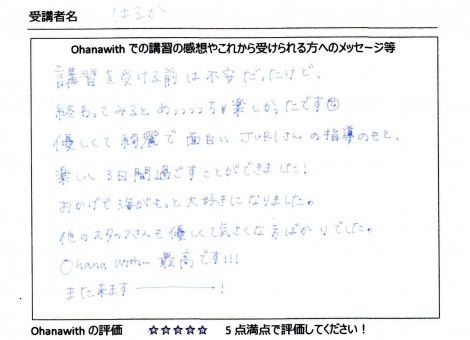 受講者名 はるか
Ohanawith での講習の感想やこれから受けられる方へのメッセージ等
講習を受ける前は不安だったけど、
終わってみるとめっっっっちゃ楽しかったです☺
優しくて綺麗で面白いJURIさんの指導のもと、
楽しく3日間過ごすことができました!
おかげで海がもっと大好きになりました。
他のスタッフさんも優しくて気さくな方ばかりでした。
Ohana with... 最高です!!!
また来ます――――!
Ohanawith の評価 ☆☆☆☆☆ 5点満点で評価してください!